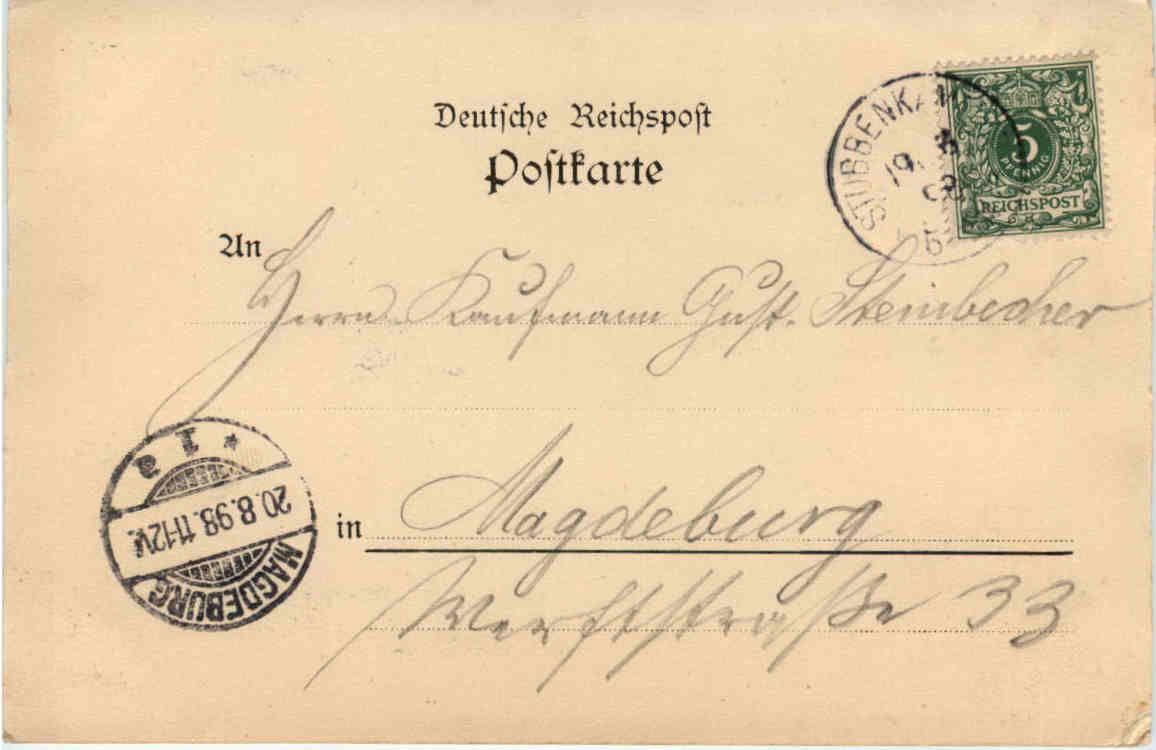 Deutsche Reichspost
Postkarte
STUBBENKAM
19. 8
98
5
5
PFENNIG
REICHSPOST
An
Herrn Kaufmann Gust. Steinbecher
in Magdeburg
Werftstraße 33
MAGDEBURG
20.8.98.11-12V.
* 1 a